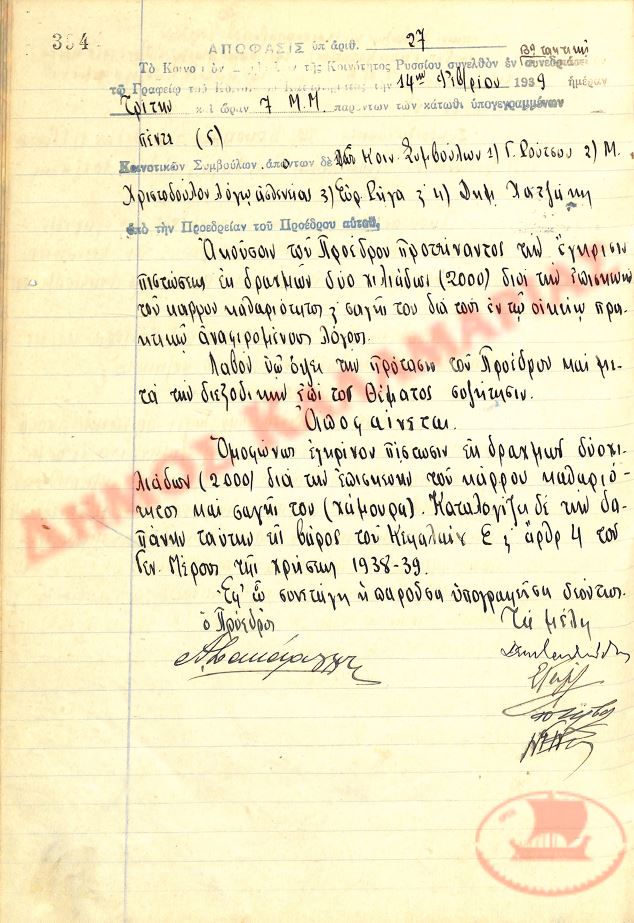 394
ΑΠΟΦΑΣΙΣ ὑπ' ἀριθ. 27
Τὸ Κοινοτικὸν τῆς Κοινότητος Ρυσσίου συνελθὸν ἐν τακτικῇ συνεδριάσει
τῷ Γραφείῳ τοῦ Κοινοτικοῦ τὴν 14ην 9/βρίου 1939 ἡμέραν
Τρίτην καὶ ὥραν 7 Μ.Μ. παρόντων τῶν κάτωθι ὑπογεγραμμένων
πέντε (5)
Κοινοτικῶν Συμβούλων ἀπόντων δὲ τῶν Κοιν. Συμβούλων 1) Γ. Ρούτσου 2) Μ.
Χριστοδούλου λόγῳ ἀσθενείας 3) Εὐρ. Ρήγα & 4) Δημ. Χατζάκη
ὑπὸ τὴν Προεδρείαν τοῦ Προέδρου αὐτοῦ,
Ἀκοῦσαν τοῦ Προέδρου προτείναντος τὴν ἔγκρισιν
πιστώσεως ἐκ δραχμῶν δύο χιλιάδων (2000) διὰ τὴν ἐπισκευὴν
τοῦ κάρρου καθαριότητος & σαγῆς του διὰ τοὺς ἐν τῷ οἰκείῳ πρα-
κτικῷ ἀναφερομένους λόγους.
Λαβὸν ὑπ' ὄψει τὴν πρότασιν τοῦ Προέδρου καὶ με-
τὰ τὴν διεξοδικὴν ἐπὶ τοῦ θέματος συζήτησιν.
Ἀποφαίνεται.
Ὁμοφώνως ἐγκρίνον πίστωσιν ἐκ δραχμῶν δύο χι-
λιάδων (2000) διὰ τὴν ἐπισκευὴν τοῦ κάρρου καθαριό-
τητος καὶ σαγῆς του (χάμουρα). Καταλογίζει δὲ τὴν δα-
πάνην ταύτην εἰς βάρος τοῦ Κεφαλαίου Ε & ἄρθρ 4 τοῦ
Γεν. Μέρους τῆς χρήσεως 1938-39.
Ἐφ' ᾧ συνετάγη ἡ παροῦσα ὑπογραφεῖσα δεόντως.
ὁ Πρόεδρος Τὰ μέλη
ΔΗΜΟΣ ΚΑΛΑΜΑΡΙΑΣ